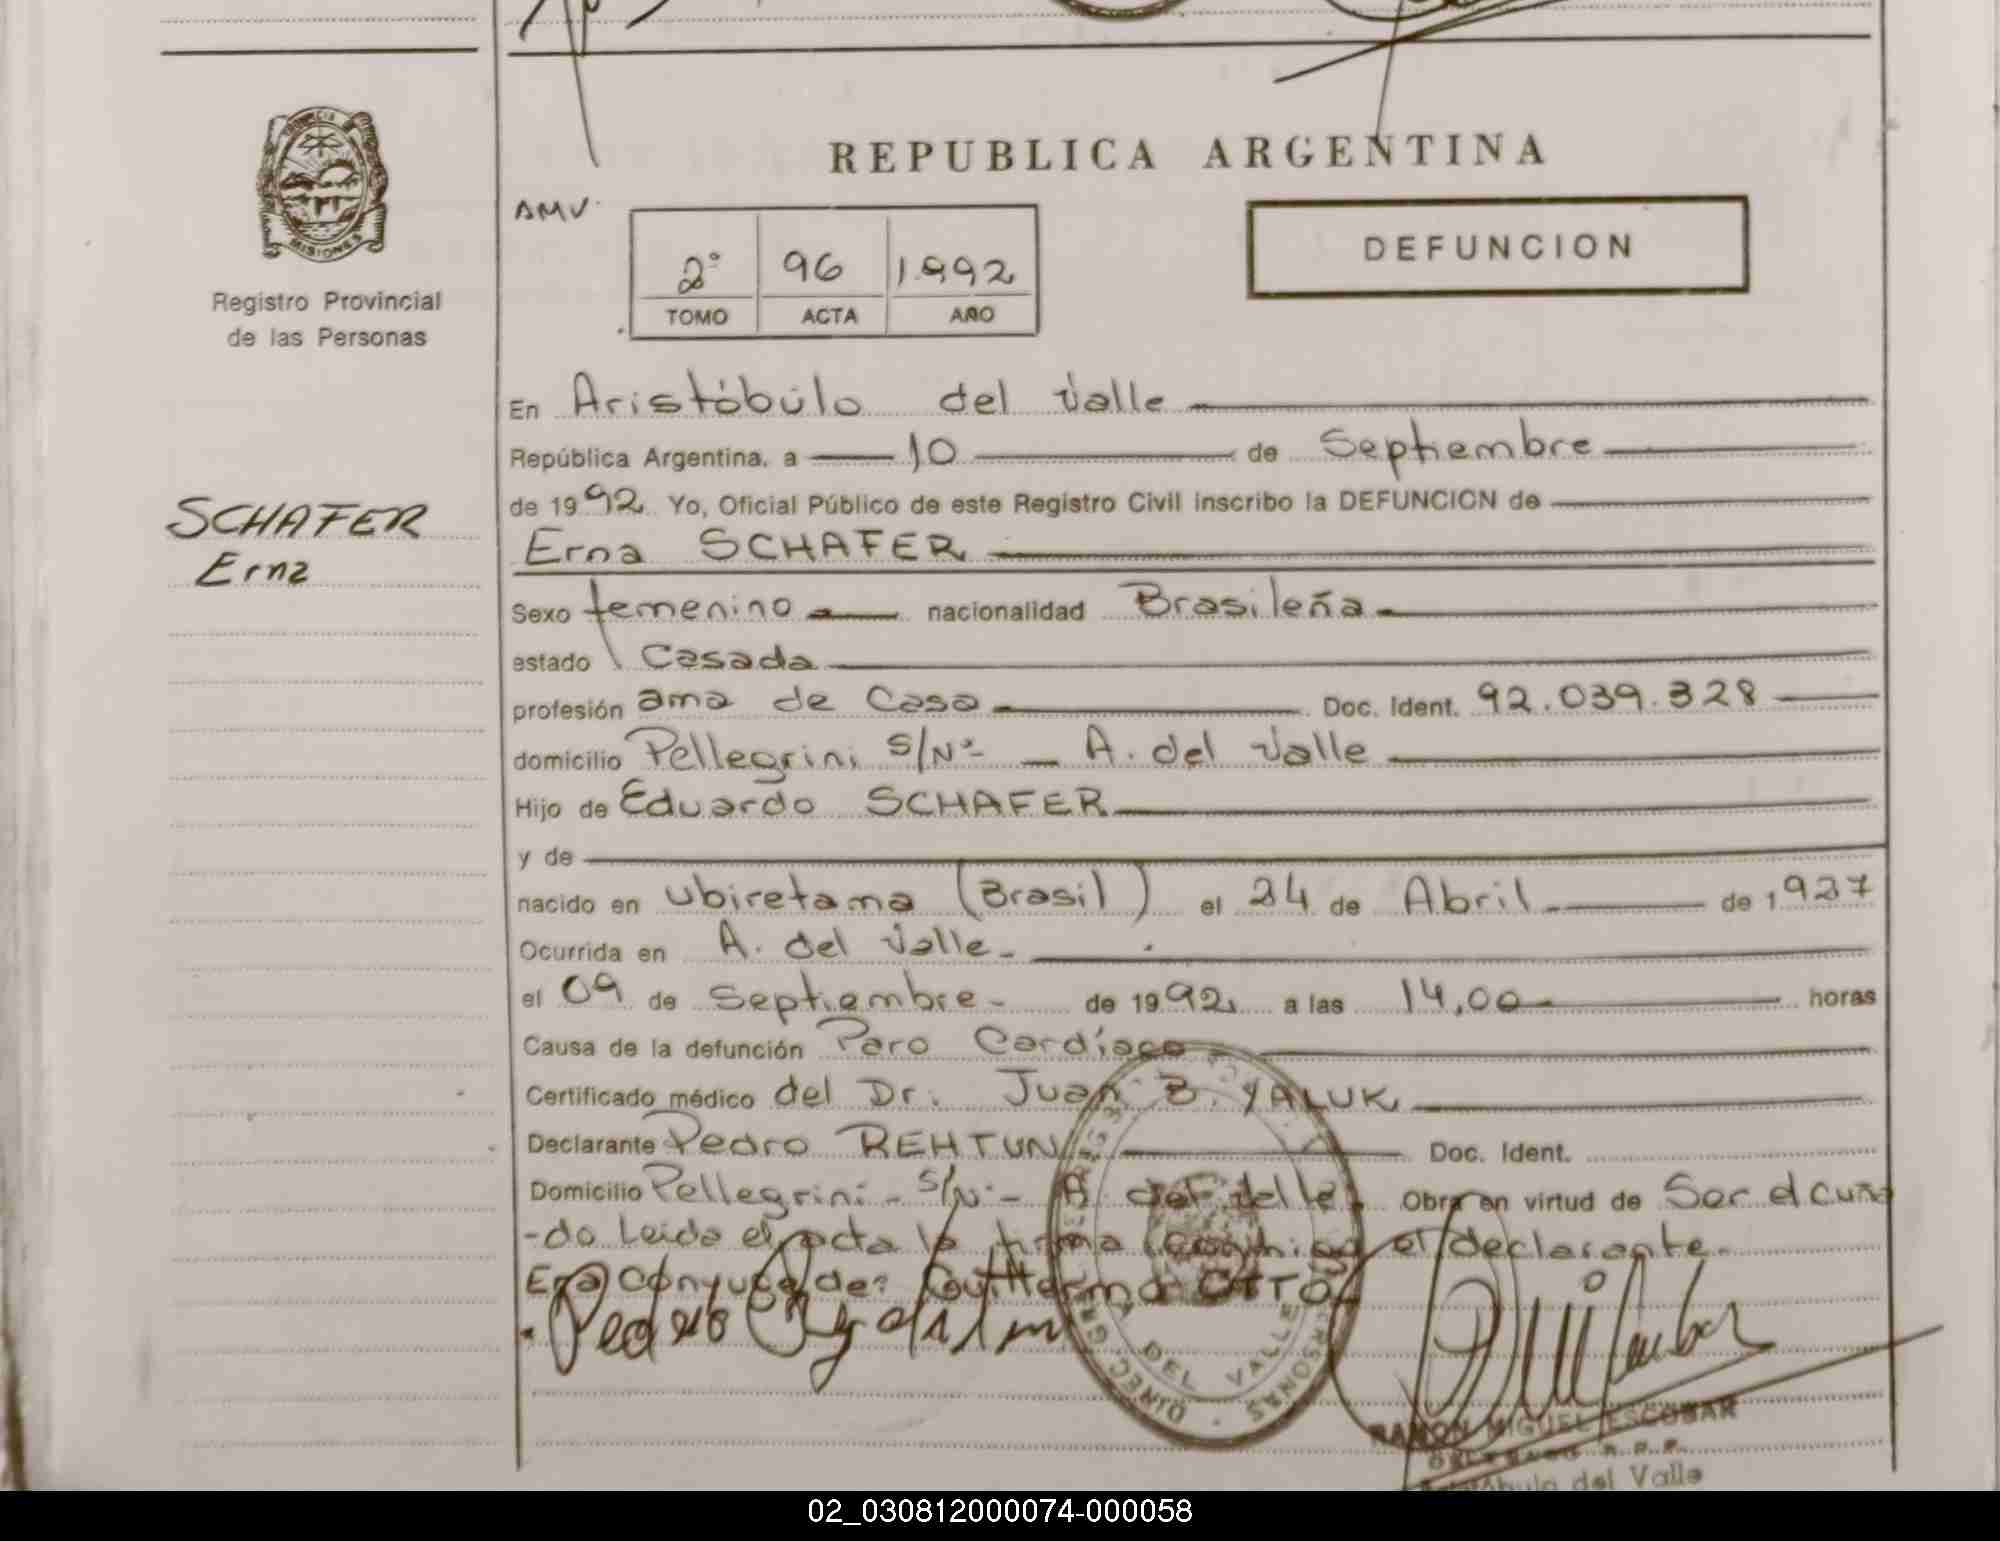 REPUBLICA ARGENTINA
PROVINCIA
MISIONES
Registro Provincial
de las Personas
AMV.
2° 96 1.992
TOMO ACTA AÑO
DEFUNCION
En Aristóbulo del Valle
República Argentina, a 10 de Septiembre
de 1992 Yo, Oficial Público de este Registro Civil inscribo la DEFUNCION de
SCHAFER
Erna
Erna SCHAFER
Sexo femenino nacionalidad Brasileña
estado Casada
profesión ama de Casa Doc. Ident. 92.039.328
domicilio Pellegrini S/Nº - A. del Valle
Hijo de Eduardo SCHAFER
y de
nacido en Ubiretama (Brasil) el 24 de Abril de 1927
Ocurrida en A. del Valle.
el 09 de Septiembre de 1992 a las 14,00 horas
Causa de la defunción Paro Cardíaco
Certificado médico del Dr. Juan B. YALUK
Declarante Pedro REHTUN Doc. Ident.
Domicilio Pellegrini - S/Nº - A. del Valle. Obra en virtud de Ser el cuña
-do Leida el acta la firma conmigo el declarante.
Era Conyuge de: Guillermo OTTO
Pedro
DEL VALLE
RAMON MIGUEL ESCOBAR
DELEGADO R. P. P.
Aristóbulo del Valle
02_030812000074-000058